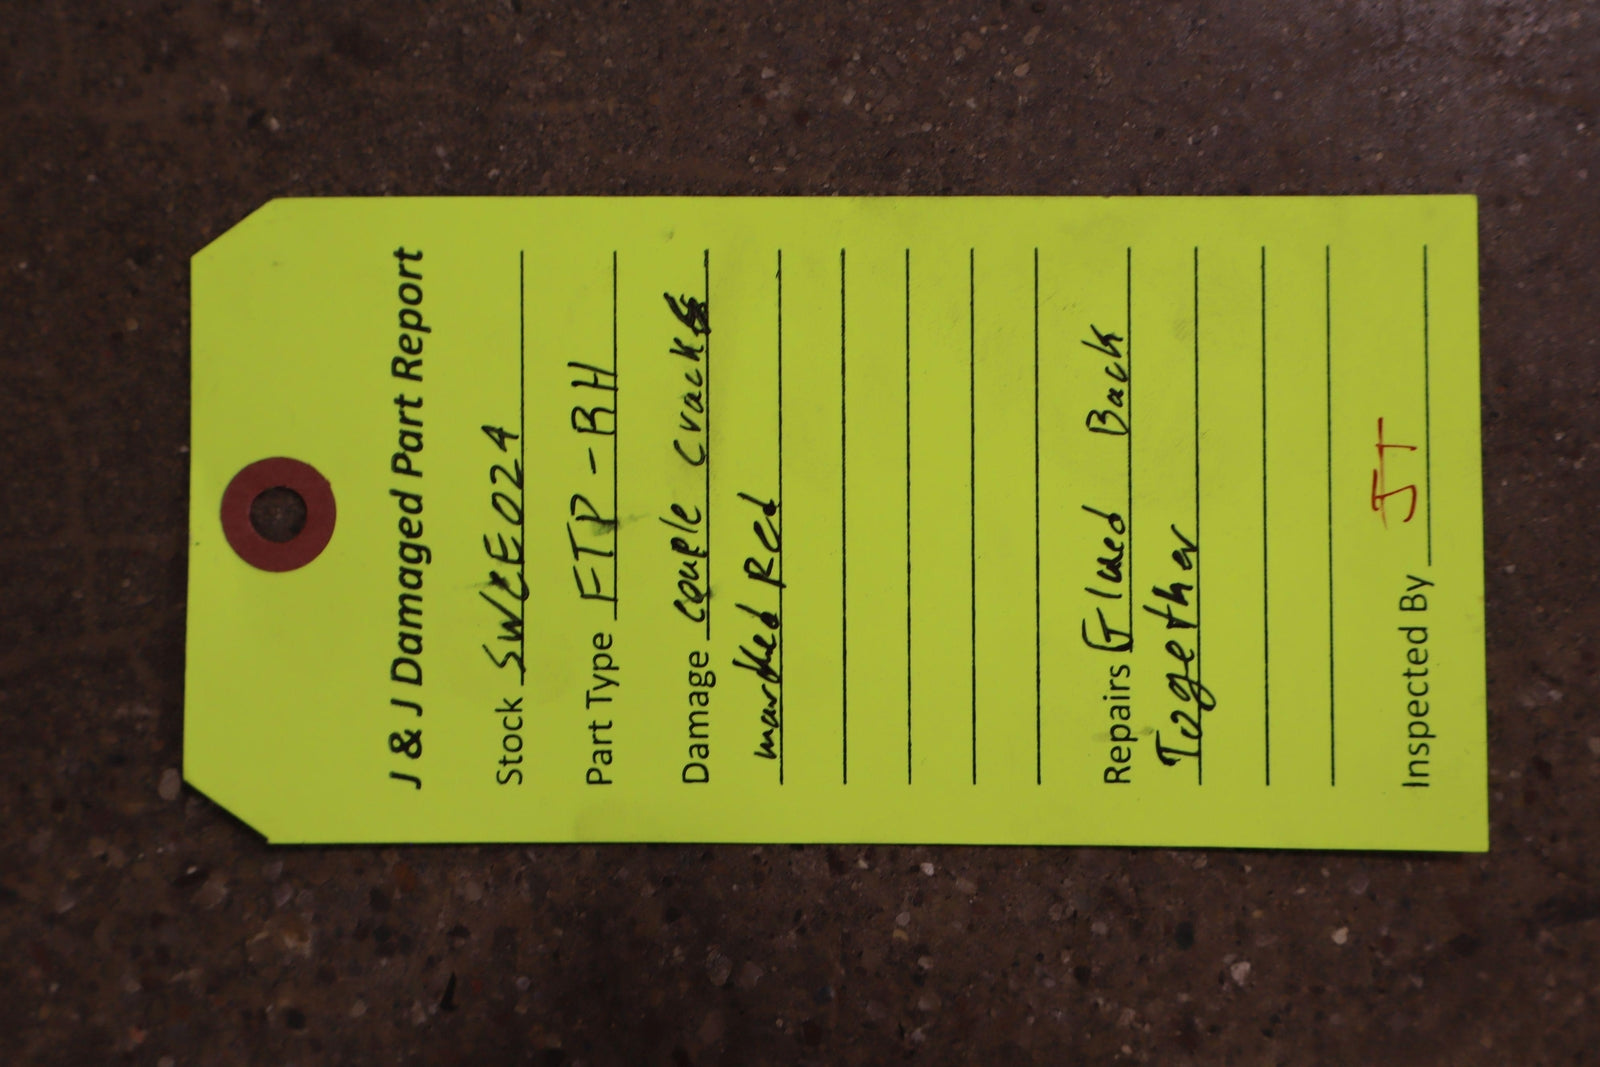 J & J Damaged Part Report
Stock SWEE024
Part Type FTP - RH
Damage couple cracks
marked Red
Repairs Glued Back
Together
Inspected By JT